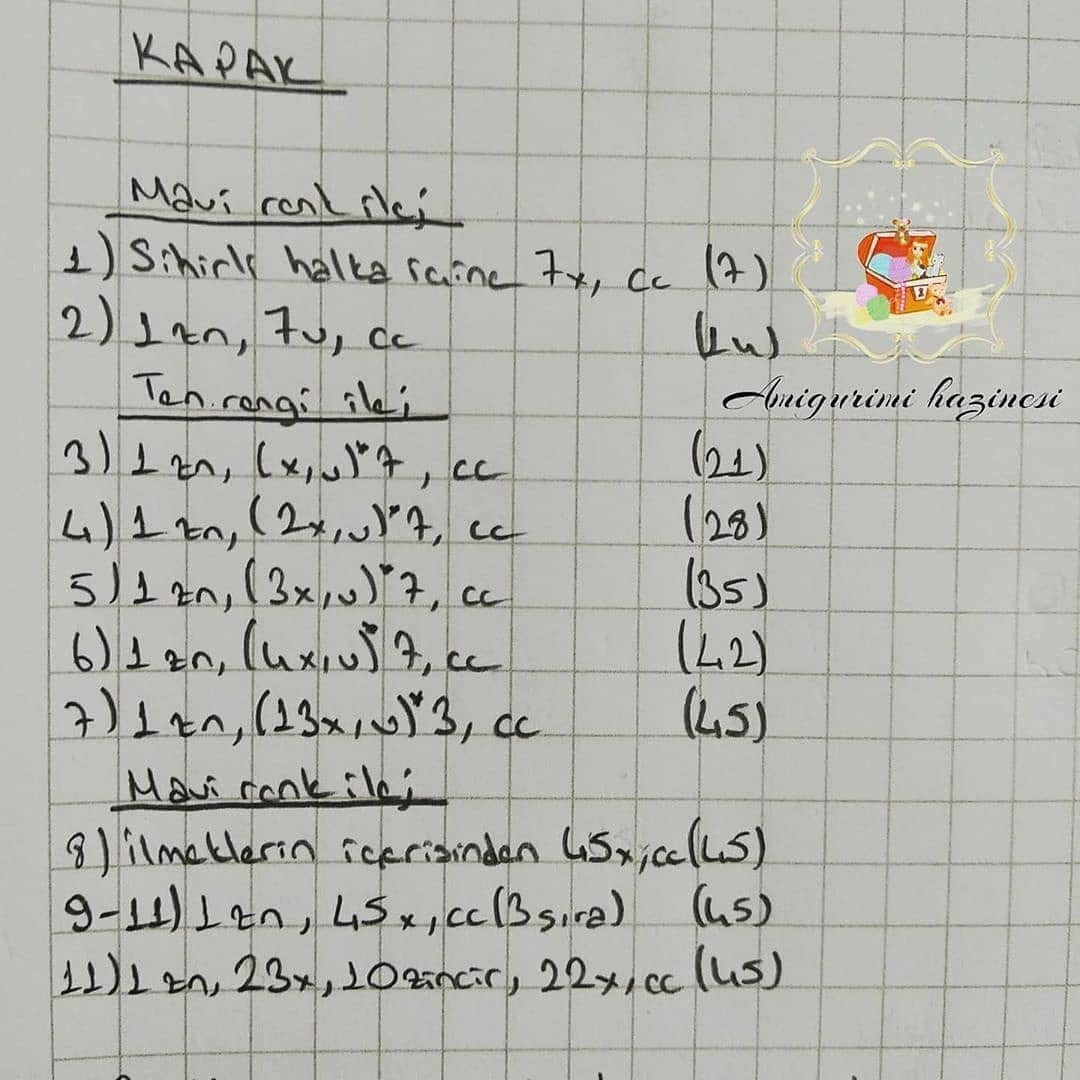 KAPAK
Mavi renk ile;
1) Sihirli halka içine 7x, cc (7)
2) 1 zn, 7v, cc (14)
Ten rengi ile;
3) 1 zn, (x,v)*7, cc (21)
4) 1 zn, (2x,v)*7, cc (28)
5) 1 zn, (3x,v)*7, cc (35)
6) 1 zn, (4x,v)*7, cc (42)
7) 1 zn, (13x,v)*3, cc (45)
Mavi renk ile;
8) ilmeklerin içerisinden 45x, cc (45)
9-11) 1 zn, 45x, cc (3 sıra) (45)
11) 1 zn, 23x, 10 zincir, 22x, cc (45)
Amigurimi hazinesi